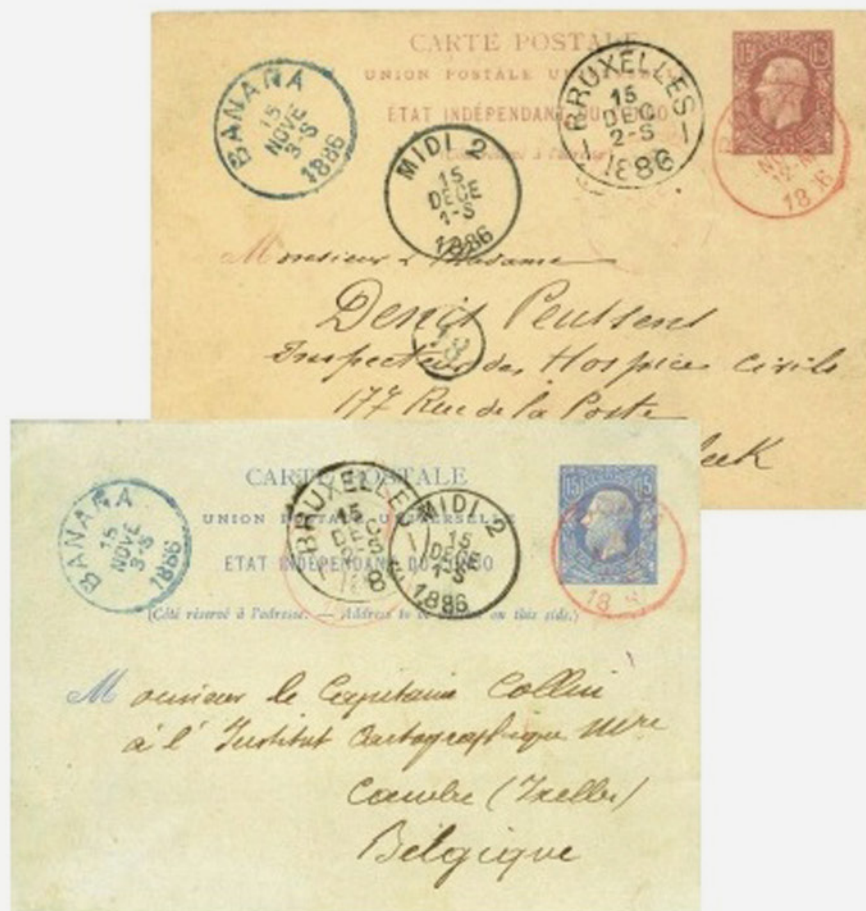 CARTE POSTALE
UNION POSTALE
ETAT INDÉPENDANT DU CONGO
15 15
BANANA
15
NOVE
3-S
1886
BRUXELLES
15
DEC
2-S
1886
MIDI 2
15
DECE
1-S
1886
18
Monsieur & Madame
Denis
Inspecteur des Hospices Civils
177 Rue de la Poste
CARTE POSTALE
UNION POSTALE UNIVERSELLE
ETAT INDÉPENDANT DU CONGO
(Côté réservé à l'adresse. — Address to be on this side.)
15 15
BANANA
15
NOVE
3-S
1886
BRUXELLES
15
MIDI 2
15
DECE
1-S
1886
18
Monsieur le Capitaine Collin
à l'Institut Cartographique Mre
Cambre (Ixelles)
Belgique